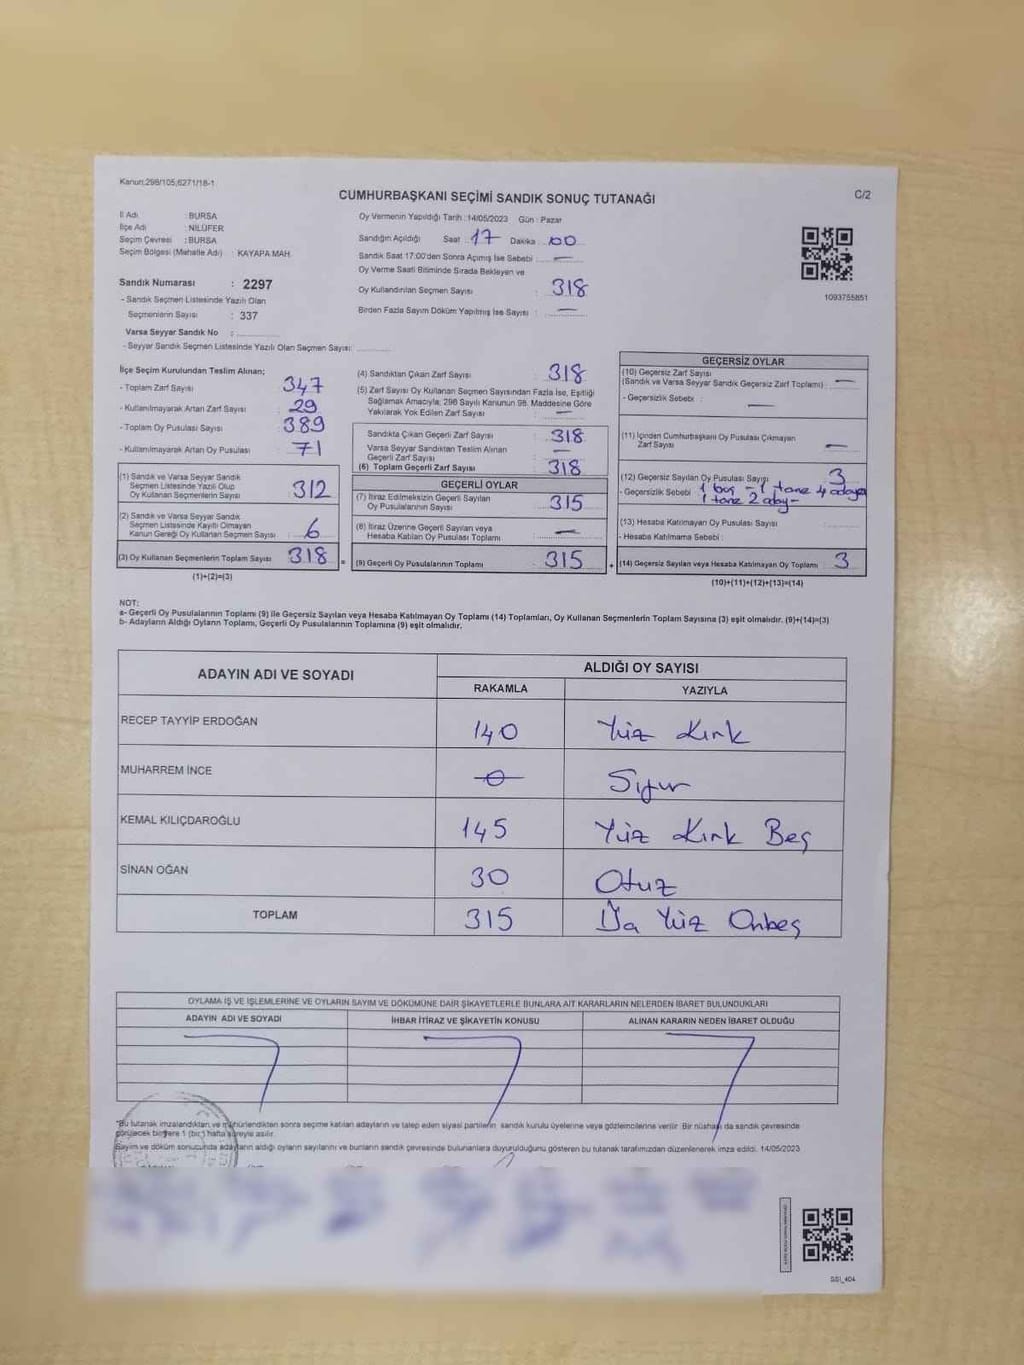 Kanun;298/105;6271/18-1
CUMHURBAŞKANI SEÇİMİ SANDIK SONUÇ TUTANAĞI
C/2
İl Adı : BURSA
İlçe Adı : NİLÜFER
Seçim Çevresi : BURSA
Seçim Bölgesi (Mahalle Adı) : KAYAPA MAH.
Sandık Numarası : 2297
- Sandık Seçmen Listesinde Yazılı Olan
Seçmenlerin Sayısı : 337
Varsa Seyyar Sandık No :
- Seyyar Sandık Seçmen Listesinde Yazılı Olan Seçmen Sayısı:
Oy Vermenin Yapıldığı Tarih :14/05/2023 Gün : Pazar
Sandığın Açıldığı Saat : 17 Dakika : 00
Sandık Saat 17:00'den Sonra Açımış İse Sebebi : —
Oy Verme Saati Bitiminde Sırada Bekleyen ve
Oy Kullandırılan Seçmen Sayısı : 318
Birden Fazla Sayım Döküm Yapılmış İse Sayısı : —
1093755851
İlçe Seçim Kurulundan Teslim Alınan;
- Toplam Zarf Sayısı : 347
- Kullanılmayarak Artan Zarf Sayısı : 29
- Toplam Oy Pusulası Sayısı : 389
- Kullanılmayarak Artan Oy Pusulası : 71
(1) Sandık ve Varsa Seyyar Sandık
Seçmen Listesinde Yazılı Olup
Oy Kullanan Seçmenlerin Sayısı 312
(2) Sandık ve Varsa Seyyar Sandık
Seçmen Listesinde Kayıtlı Olmayan
Kanun Gereği Oy Kullanan Seçmen Sayısı : 6
(3) Oy Kullanan Seçmenlerin Toplam Sayısı 318
(1)+(2)=(3)
(4) Sandıktan Çıkan Zarf Sayısı : 318
(5) Zarf Sayısı Oy Kullanan Seçmen Sayısından Fazla İse, Eşitliği
Sağlamak Amacıyla; 298 Sayılı Kanunun 98. Maddesine Göre
Yakılarak Yok Edilen Zarf Sayısı : —
Sandıkta Çıkan Geçerli Zarf Sayısı : 318
Varsa Seyyar Sandıktan Teslim Alınan
Geçerli Zarf Sayısı : —
(6) Toplam Geçerli Zarf Sayısı : 318
GEÇERLİ OYLAR
(7) İtiraz Edilmeksizin Geçerli Sayılan
Oy Pusulasının Sayısı : 315
(8) İtiraz Üzerine Geçerli Sayılan veya
Hesaba Katılan Oy Pusulası Toplamı : —
= (9) Geçerli Oy Pusulalarının Toplamı 315 +
GEÇERSİZ OYLAR
(10) Geçersiz Zarf Sayısı
(Sandık ve Varsa Seyyar Sandık Geçersiz Zarf Toplamı) : —
- Geçersizlik Sebebi : —
(11) İçinden Cumhurbaşkanı Oy Pusulası Çıkmayan
Zarf Sayısı —
(12) Geçersiz Sayılan Oy Pusulası Sayısı 3
- Geçersizlik Sebebi 1 boş - 1 tane 4 adaya
1 tane 2 aday -
(13) Hesaba Katılmayan Oy Pusulası Sayısı
- Hesaba Katılmama Sebebi :
(14) Geçersiz Sayılan veya Hesaba Katılmayan Oy Toplamı 3
(10)+(11)+(12)+(13)=(14)
NOT:
a- Geçerli Oy Pusulalarının Toplamı (9) ile Geçersiz Sayılan veya Hesaba Katılmayan Oy Toplamı (14) Toplamları, Oy Kullanan Seçmenlerin Toplam Sayısına (3) eşit olmalıdır. (9)+(14)=(3)
b- Adayların Aldığı Oyların Toplamı, Geçerli Oy Pusulalarının Toplamına (9) eşit olmalıdır.
ADAYIN ADI VE SOYADI
ALDIĞI OY SAYISI
RAKAMLA YAZIYLA
RECEP TAYYİP ERDOĞAN 140 Yüz Kırk
MUHARREM İNCE 0 Sıfır
KEMAL KILIÇDAROĞLU 145 Yüz Kırk Beş
SİNAN OĞAN 30 Otuz
TOPLAM 315 Yüz Onbeş
OYLAMA İŞ VE İŞLEMLERİNE VE OYLARIN SAYIM VE DÖKÜMÜNE DAİR ŞİKAYETLERLE BUNLARA AİT KARARLARIN NELERDEN İBARET BULUNDUKLARI
ADAYIN ADI VE SOYADI İHBAR İTİRAZ VE ŞİKAYETİN KONUSU ALINAN KARARIN NEDEN İBARET OLDUĞU
*Bu tutanak imzalandıktan ve mühürlendikten sonra seçime katılan adayların ve talep eden siyasi partilerin sandık kurulu üyelerine veya gözlemcilerine verilir. Bir nüshası da sandık çevresinde
görülecek bir yere 1 (bir) hafta süreyle asılır.
Sayım ve döküm sonucunda adayların aldığı oyların sayılarını ve bunların sandık çevresinde bulunanlara duyurulduğunu gösteren bu tutanak tarafımızdan düzenlenerek imza edildi. 14/05/2023